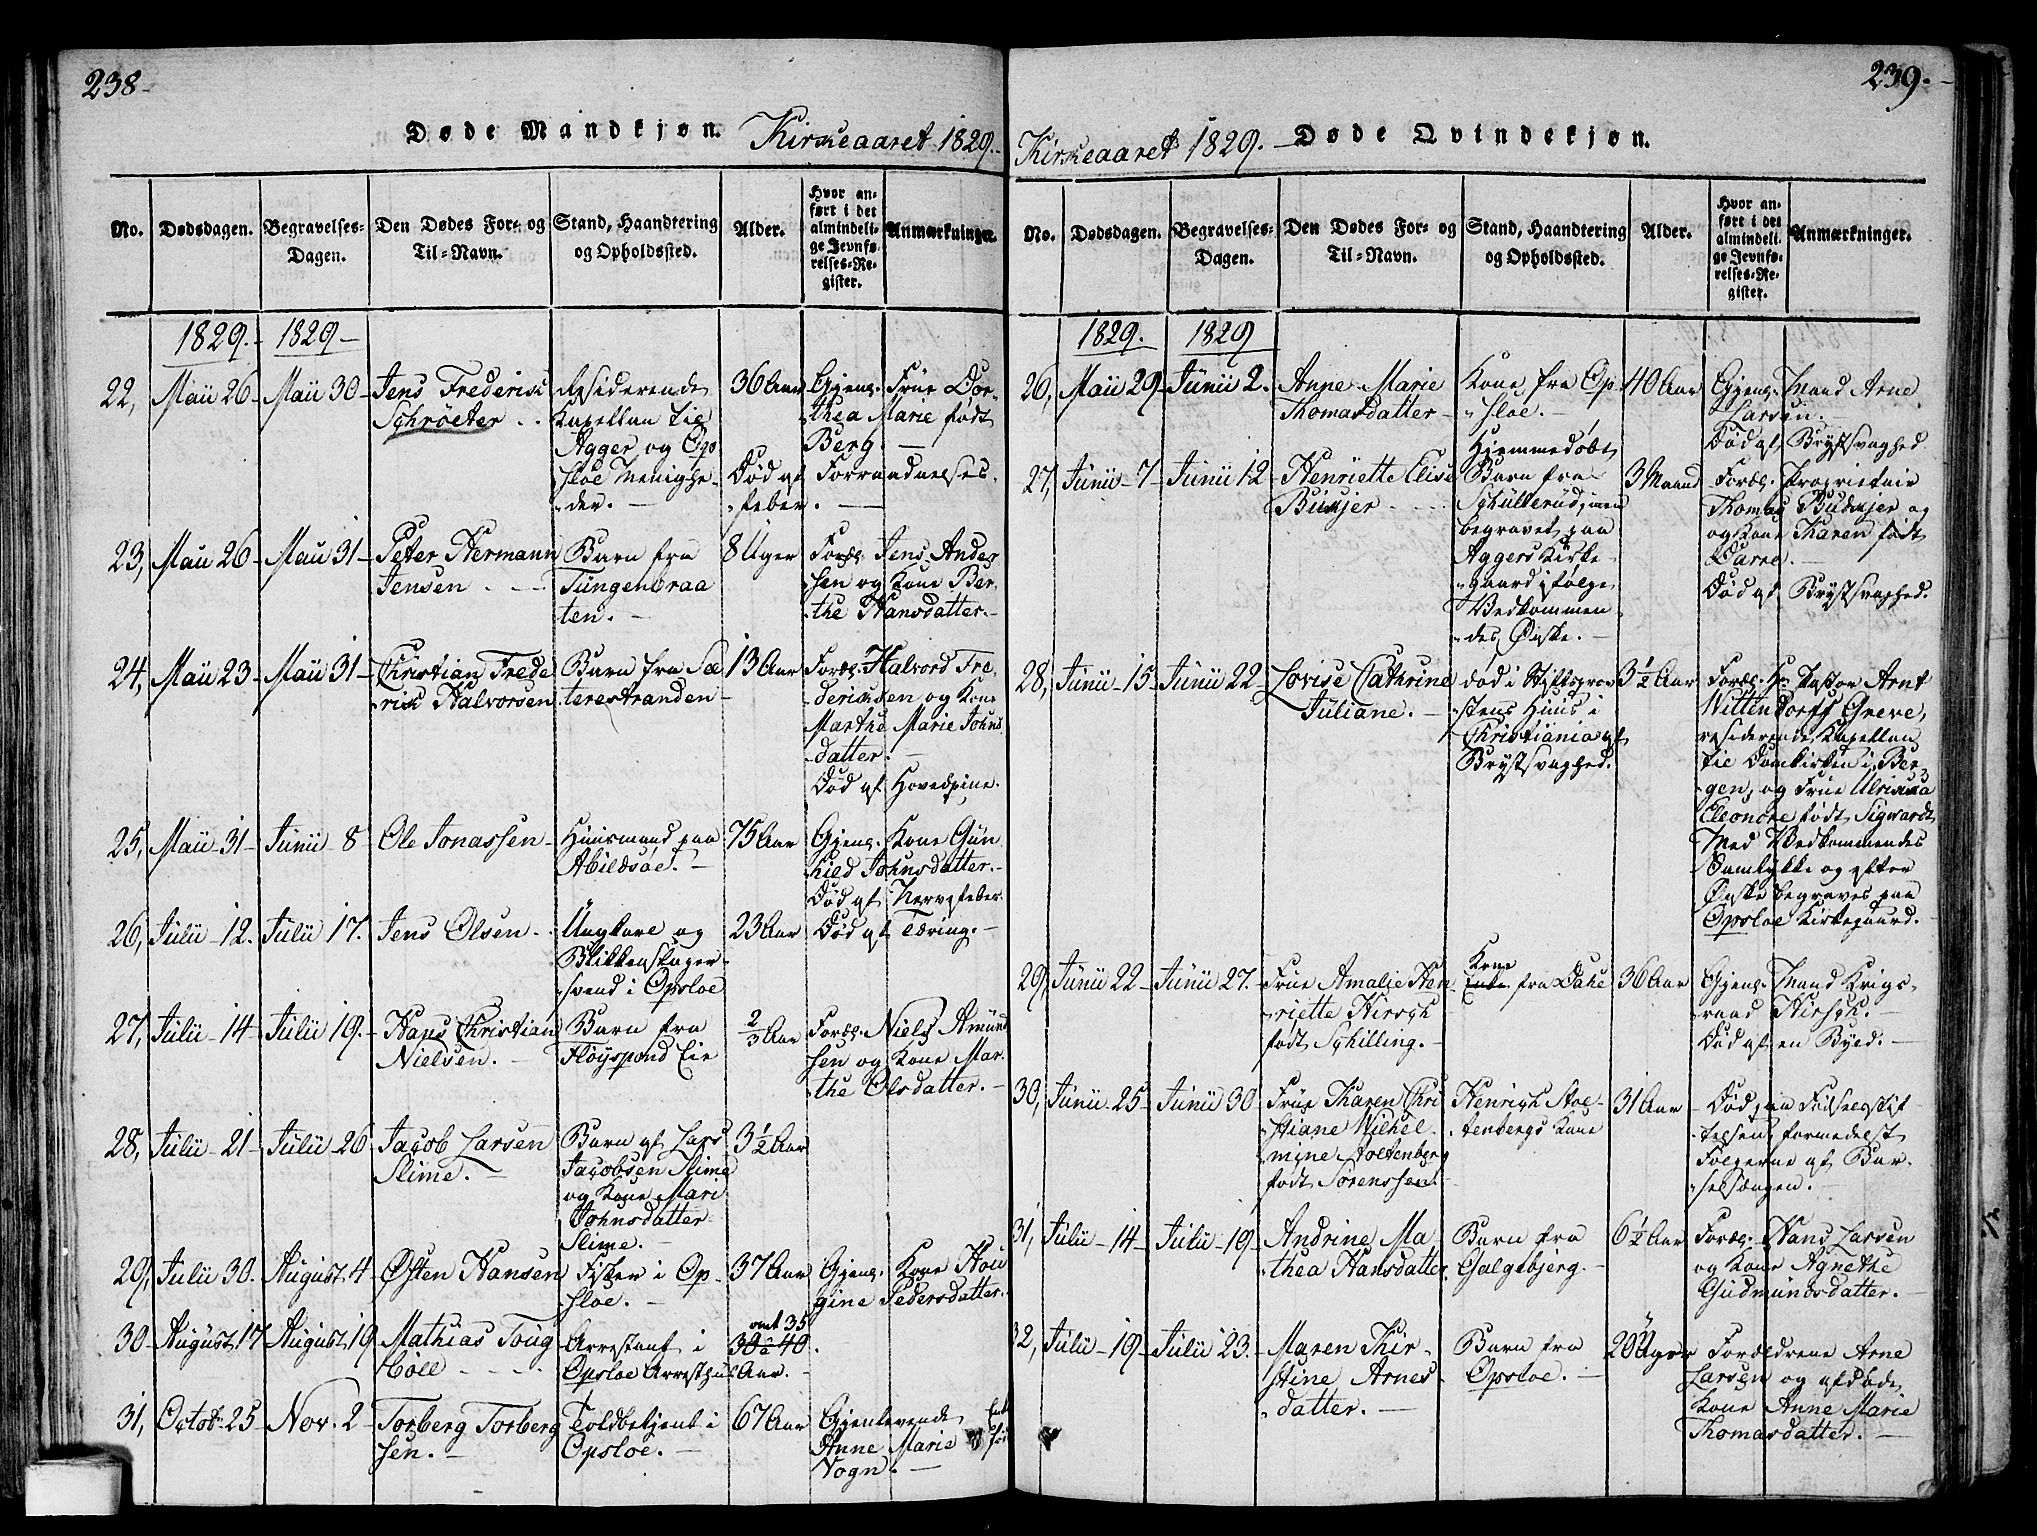 238-
Døde Mandkjøn. Kirkeaaret 1829.
No. Dødsdagen. Begravelses-Dagen. Den Dødes For- og Til-Navn. Stand, Haandtering og Opholdssted. Alder. Hvor anført i det almindelige Jevnførelses-Register. Anmærkninger.
1829. 1829
22, Maii 26 Maii 30 Jens Frederik
Schrøeter
Residerende
Kapellan til
Agger og Op
sloe Menighe-
der.
36 Aar
Gjenl. Frue Dor-
thea Marie født
Berg.
Død af Forraadnelses-
feber.
23, Maii 26 Maii 31 Peter Hermann
Jensen
Barn fra
Tungenbraa
ten.
8 Uger
Foræl. Jens Ander
sen og Kone Ber-
the Hansdatter.
24, Maii 23 Maii 31 Christian Frede
rik Halvorsen
Barn fra Sæ
terestranden
13 Aar
Foræl. Halvord Fre-
dericksen og Kone
Marthe Marie Johns
datter.
Død af Hovedpine.
25, Maii 31 Junii 8 Ole Jonassen
Huusmand paa
Abildsøe.
75 Aar
Gjenl. Kone Gun
hild Johnsdatter.
Død af Nervefeber
26, Julii 12. Julii 17. Jens Olsen
Ungkarl og
Blikkenslager-
svend i Opsloe
23 Aar
Død af Tæring.
27, Julii 14 Julii 19. Hans Christian
Nielsen.
Barn fra
Fløyspond Eie
2/3 Aar
Foræl. Niels Amund
sen og Kone Mar-
the Olsdatter.
28, Julii 21 Julii 26 Jacob Larsen
Slime.
Barn af Lars
Jacobsen Slime
og Kone Mari
Johnsdatter
Slime.
3 1/2 Aar
29, Julii 30. August. 4 Østen Hansen
Fisker i Op-
sloe.
37 Aar
Gjenl. Kone Hou
gine Pedersdatter.
30 August. 17 August. 19 Mathias Toug
Coll
Arrestant i
Opsloe Arresthuus
omt 35
30 à 40
Aar.
31, Octob. 25 Nov. 2 Torberg Torberg
sen.
Toldbetjent i
Opsloe.
67 Aar
Gjenlevende
Anne Marie
Vogn.
239.
Kirkeaaret 1829. Døde Qvindekjøn.
No. Dødsdagen. Begravelses-Dagen. Den Dødes For- og Til-Navn. Stand, Haandtering og Opholdssted. Alder. Hvor anført i det almindelige Jevnførelses-Register. Anmærkninger.
1829. 1829
26, Maii 29 Junii 2. Anne Marie
Thomasdatter
Kone fra Op-
sloe.
40 Aar
Gjenl. Mand Arne
Larsen.
Død af Brystsvaghed
27, Junii 7 Junii 12 Henriette Elise
Hjemmedøbt
Barn fra
Schulterud, men
begravet paa
Aggers Kirke-
gaard ifølge
Vedkommen
des Ønske.
3 Maaned
Foræl. Proprietair
Thomas og
og Kone Karen født
Død af Brystsvaghed.
28, Junii 15 Junii 22 Lovise Cathrine
Juliane.
død i Stiftsprov
stens Huus i
Christiania af
Brystsvaghed.
3 1/2 Aar
Foræl. Hr. Pastor Arnt
Wittendorff Greve,
residerende Kapellan
til Domkirken i Ber-
gen, og Frue Ulricka
Eleonore født Sigwardt
Med Vedkommendes
Samtykke og efter
Ønske begraves paa
Opsloe Kirkegaard.
29, Junii 22 Junii 27. Frue Amalie Hen-
riette Hirsch
født Schilling.
Kone
Enke fra Dahl
36 Aar
Gjenl. Mand Krigs-
raad Hirsch.
Død af en Byld.
30, Junii 25 Junii 30 Frue Karen Chri
stiane Wilhel
mine Stoltenberg
født Sørenssen.
Henrich Stol-
tenbergs Kone
31 Aar
Død paa Fødselsstif-
telsen, formedelst
Følgerne af Bar-
selsængen.
31, Julii 14 Julii 19 Andrine Ma
thea Hansdatter
Barn fra
Galgebjerg.
6 1/2 Aar
Foræl. Hans Larsen
og Kone Agnethe
Gudmundsdatter.
32, Julii 19 Julii 23. Maren Kir-
stine Arnes
datter.
Barn fra
Opsloe.
20 Uger
Forældrene Arne
Larsen og afdøde
Kone Anne Marie
Thomasdatter.